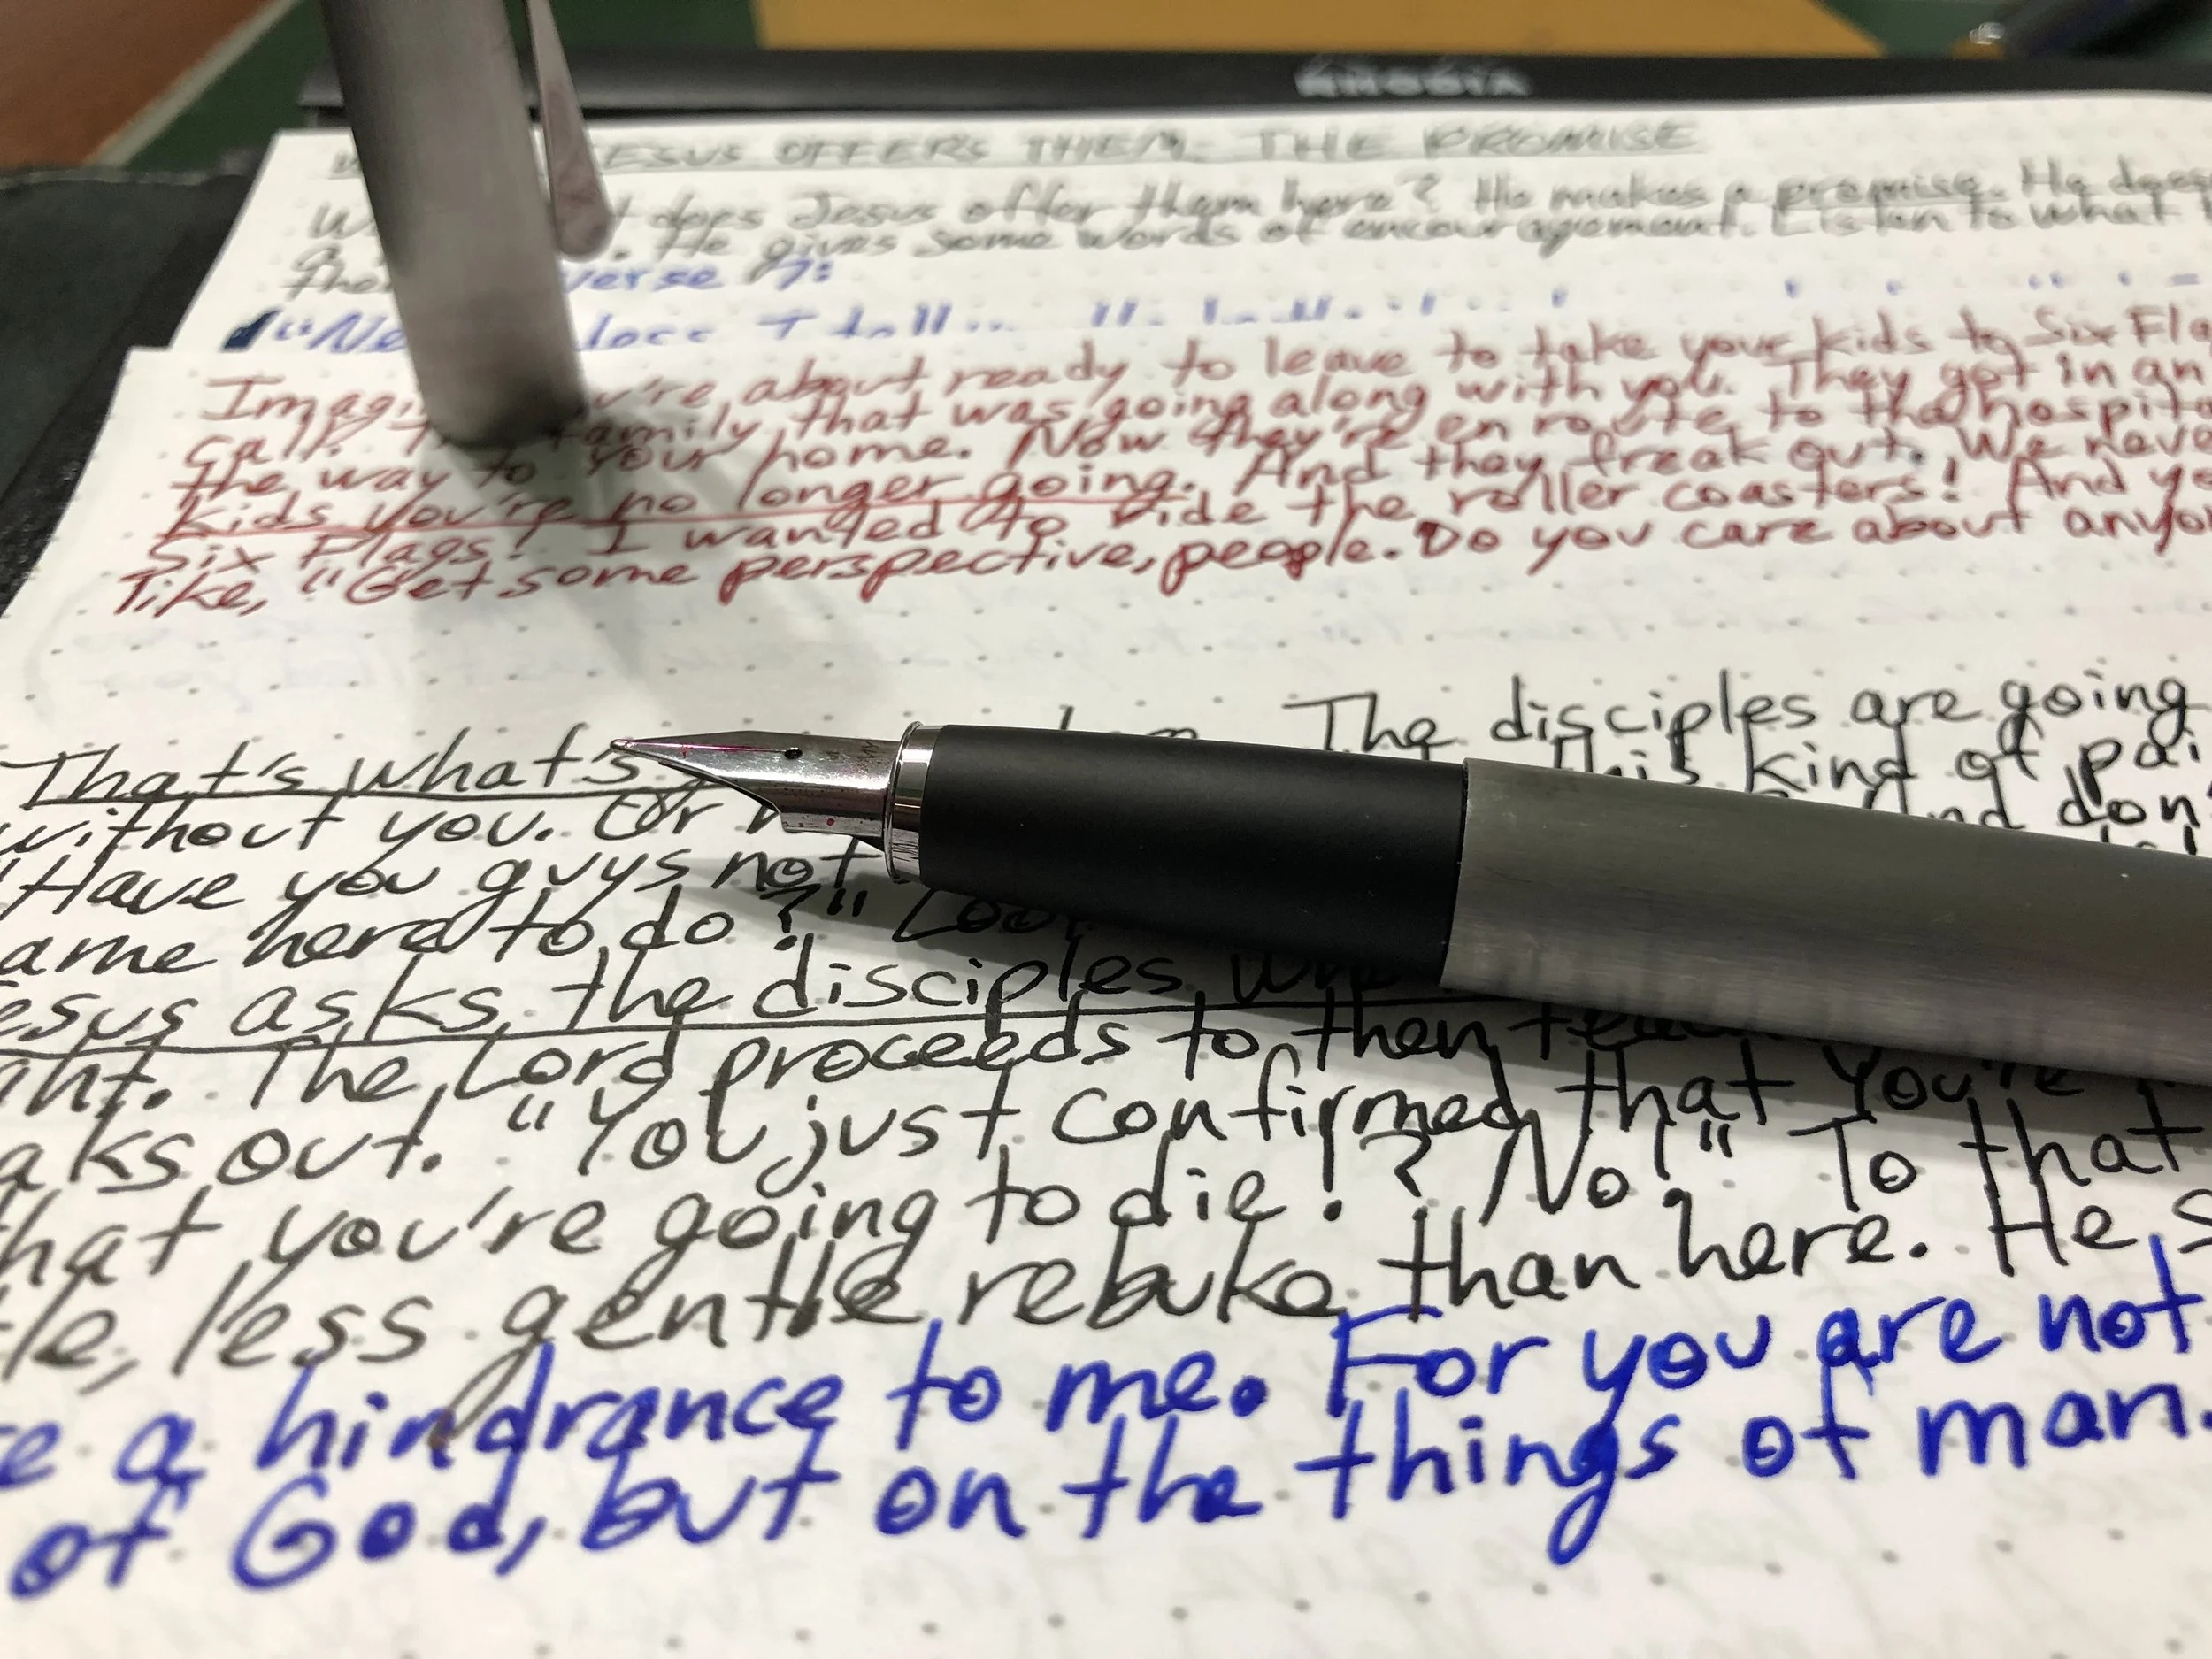 RHODIA
ESUS OFFERS THEM: THE PROMISE
does Jesus offer them here? He makes a promise. He does
a . He gives some words of encouragement. Listen to what
verse 7:
"Ne
Imagi 're about ready to leave to take your kids to Six Fla
call. family that was going along with you. They got in an
the way to your home. Now they're en route to the hospita
kids you're no longer going. And they freak out. We neve
Six Flags! I wanted to ride the roller coasters! And ye
like, "Get some perspective, people. Do you care about anyo
That's what's The disciples are going
without you. Or this kind of pai
"Have you guys not nd don'
ame here to do?" Loo
esus asks the disciples wh
ht. The Lord proceeds to then teac
aks out. "You just confirmed that you're
hat you're going to die!? No!" To that
le, less gentle rebuke than here. He s
e a hindrance to me. For you are not
of God, but on the things of man.